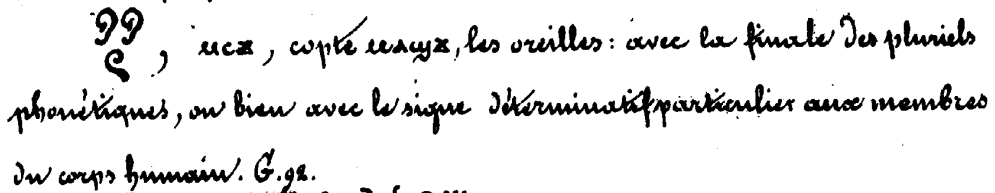 , ⲙⲥϫ, copte ⲙⲁϣϫ, les oreilles : avec la finale des pluriels
phonétiques, ou bien avec le signe déterminatif particulier aux membres
du corps humain. G. 92.